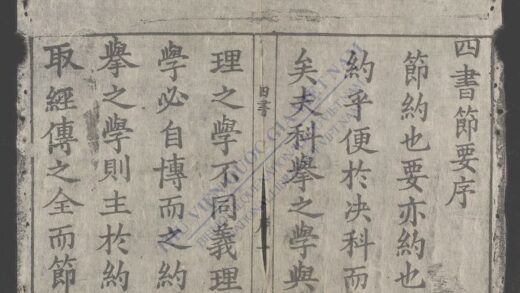 四書節要序
節約也要亦約也
約乎便於决科而
矣夫科擧之學與
四書
理之學不同義理
學必自博而之約
擧之學則主於約
取經傳之全而節
VIỆN QUỐC GIA VIỆT NAM